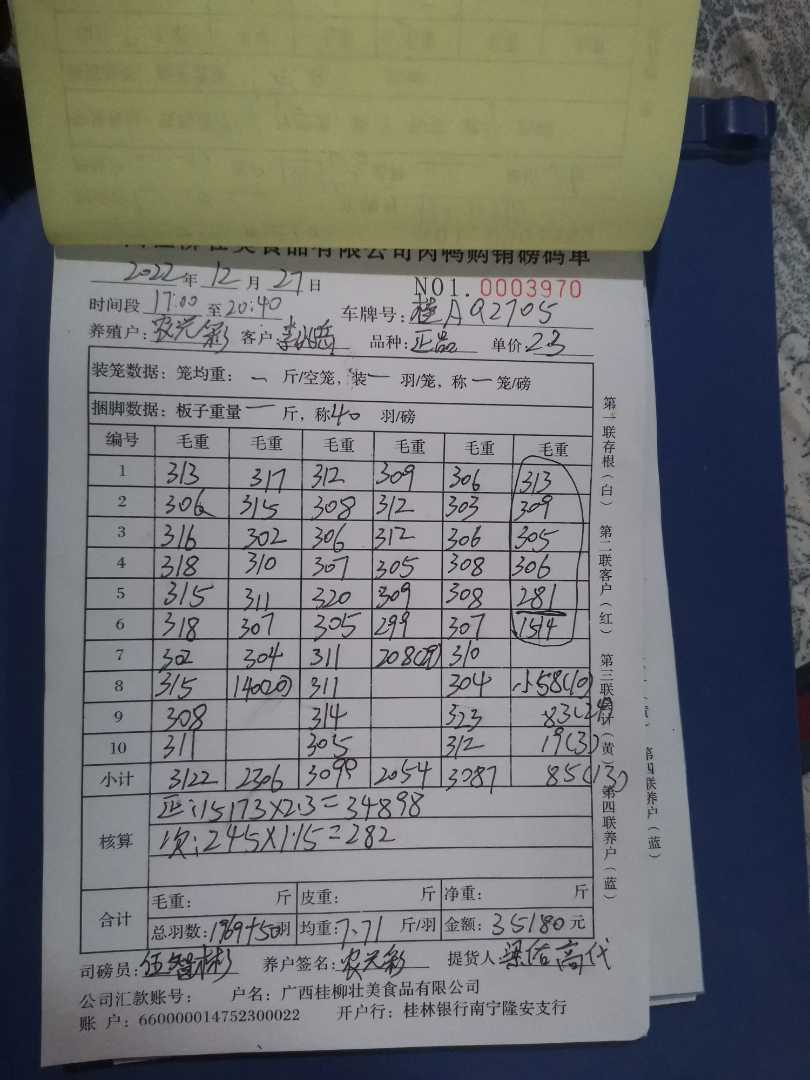 桂柳壮美食品有限公司肉鸭购销磅码单
2022年12月27日 NO1.0003970
时间段 17:00 至20:40 车牌号:桂AQ2705
养殖户:农元彩 客户 品种:正品 单价2.3
装笼数据:笼均重:一斤/空笼,装一羽/笼,称一笼/磅
捆脚数据:板子重量一斤,称40羽/磅
编号 毛重 毛重 毛重 毛重 毛重 毛重
1 313 317 312 309 306 313
2 306 315 308 312 303 309
3 316 302 306 312 306 305
4 318 310 307 305 308 306
5 315 311 320 309 308 281
6 318 307 305 299 307 1514
7 302 304 311 208(27) 310
8 315 140(20) 311 304 小58(10)
9 308 314 323 83(24)
10 311 305 312 19(3)
小计 3122 2306 3099 2054 3087 85(13)
核算
正:15173×2.3=34898
次:245×1.15=282
合计
毛重: 斤 皮重: 斤 净重: 斤
总羽数:1969+50羽 均重:7.71斤/羽 金额:35180元
司磅员:伍智彬 养户签名:农元彩 提货人
公司汇款账号: 户名:广西桂柳壮美食品有限公司
账 户:660000014752300022 开户行:桂林银行南宁隆安支行
第一联存根(白) 第二联客户(红) 第三联会计(黄) 第四联养户(蓝)
第四联养户(蓝)